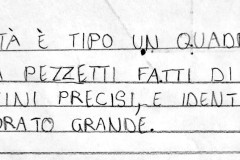 TÀ È TIPO UN QUADR
PEZZETTI FATTI DI
INI PRECISI, E IDENT
ORATO GRANDE.